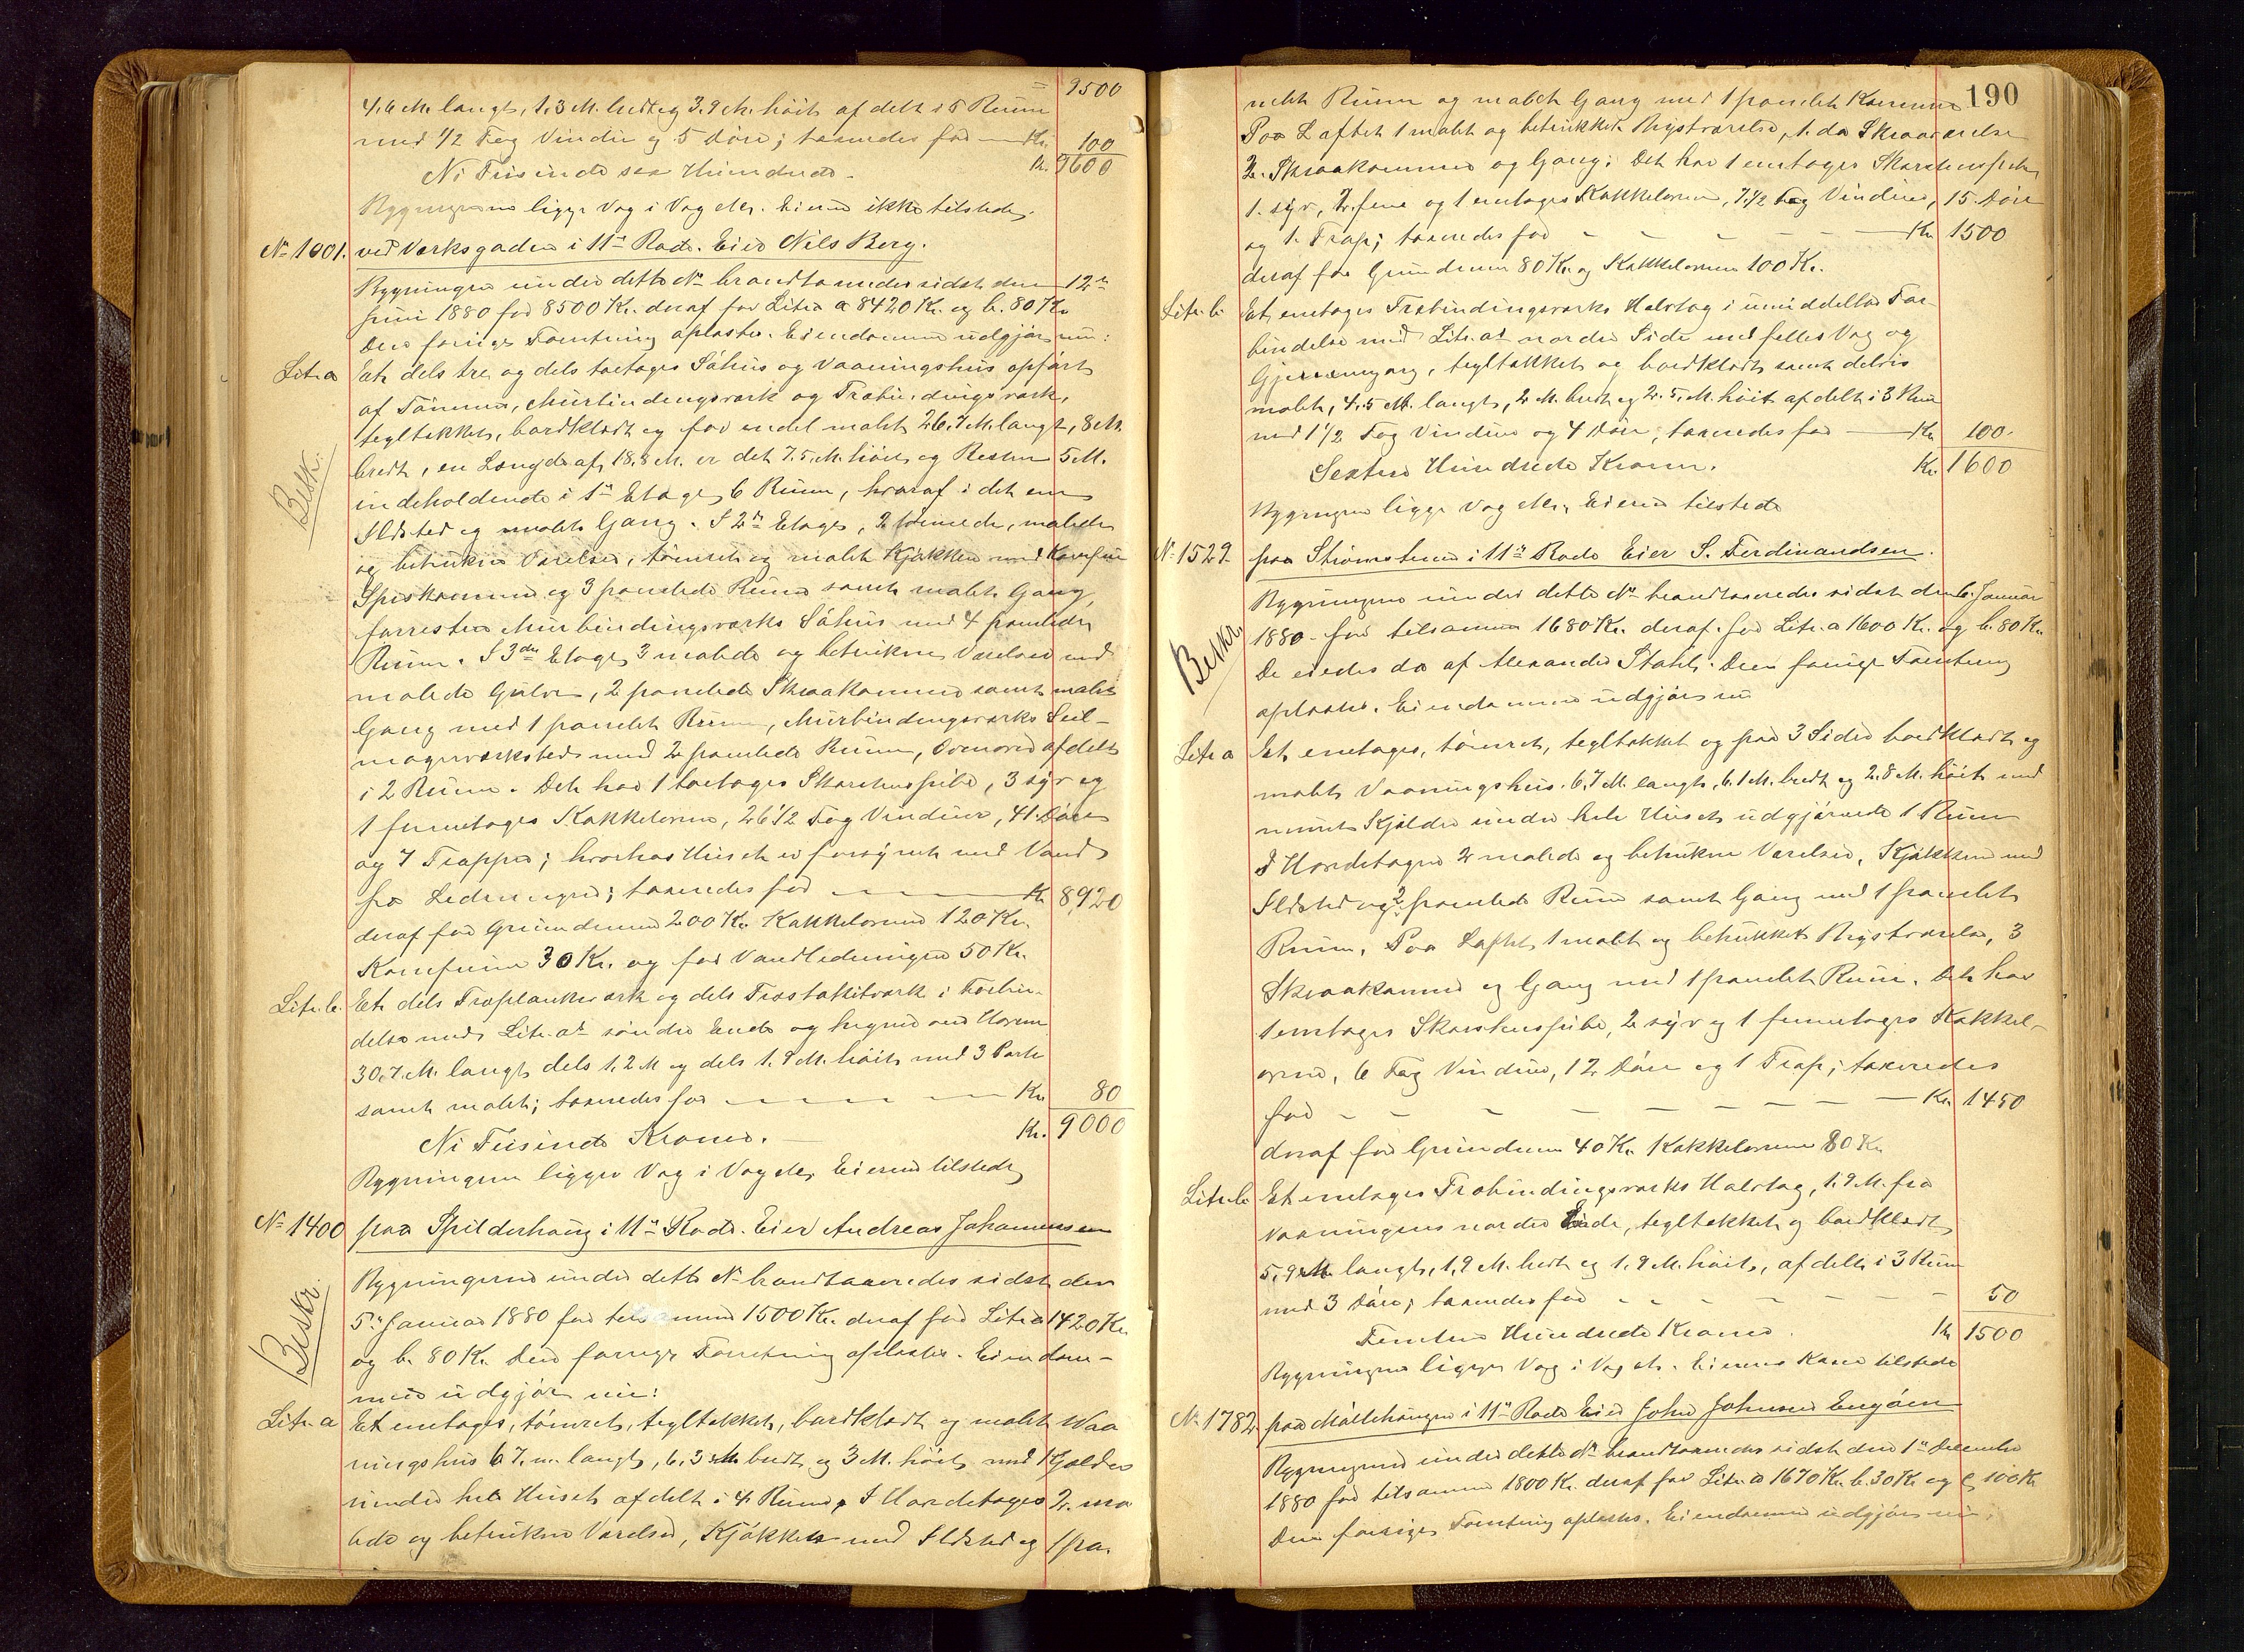 9500
4,6 M. langt, 1,3 M. bredt og 3,9 M. höit afdelt i 5 Rum
med 1/2 Fag Vindue og 5 Döre; taxeredes for — Kr. 100
Ni Tusinde sex Hundrede. Kr. 9600
Bygningerne ligge Vag i Vag etc. Eieren ikke tilstede.
No 1001. ved Værksgaden i 11te Rode. Eier Nils Berg.
Bygningen under dette No brandtaxeredes sidst den 12te
Juni 1880 for 8500 Kr. deraf for Litra a 8420 Kr. og b. 80 Kr.
Den forrige Forretning oplæstes. Eiendommen udgjör nu:
Litr. a Et dels tre og dels toetages Söhus og Vaaningshus opfört
af Tömmer, Murbindingsværk og Træbindingsværk,
tegltækket, bordklædt og for endel malet 26,7 M. langt, 8 M.
bredt, en Længde af 18,8 M. er det 7,5 M. höit, og Resten 5 M.
Beskr.
indeholdende i 1ste Etage 6 Rum, hvoraf i det ene
Ildsted og malet Gang. I 2den Etage, 2 tömrede, malede
og betrukne Værelser, tömret og malet Kjökken med Komfur
Spiskammer og 3 panelede Rum samt malet Gang,
forresten Murbindingsværks Söhus med 4 panelede
Rum. I 3die Etage 3 malede og betrukne Værelser med
malede Gulve, 2 panelede Skraakammer samt malet
Gang med 1 panelet Rum, Murbindingsværks Seil-
magerværksted med 2 panelede Rum, Ovenover afdelt
i 2 Rum. Det har 1 toetages Skorstenspibe, 3 syv og
1 femetages Kakkelovne, 26 1/2 Fag Vinduer, 41 Döre
og 7 Trapper; hvorhos Huset er forsynet med Vand
fra Ledningen; taxeredes for — Kr 8920
deraf for Grundmuren 200 Kr. Kakkelovnene 120 Kr.
Komfuren 30 Kr. og for Vandledningen 50 Kr.
Litr. b. Et dels Træplankeværk og dels Træstakitværk i Forbin-
delse med Litr. as söndre Ende og hegner om Haven
30,7 M. langt, dels 1,2 M og dels 1,9 M. höit med 3 Porte
samt malet; taxeredes for — Kr. 80
Ni Tusinde Kroner. — Kr. 9000
Bygningerne ligger Vag i Vag etc. Eieren tilstede
No 1400 paa Spilderhaug i 11te Rode. Eier Andreas Johannessen
Bygningerne under dette No brandtaxeredes sidst den
Beskr.
5te Januar 1880 for tilsammen 1500 Kr. deraf for Litra a 1420 Kr.
og b. 80 Kr. Den forrige Forretning oplæstes. Eiendom-
men udgjör nu:
Litr. a Et enetages, tömret, tegltækket, bordklædt og malet Vaa
ningshus 6,7 m. langt, 6,3 M. bredt og 3 M. höit med Kjælder
under hele Huset afdelt i 4 Rum. I Hovedetagen 2 ma
lede og betrukne Værelser, Kjökken med Ildsted og 1 pa-
190
nelet Rum og malet Gang med 1 panelet Kammer
Paa Loftet 1 malet og betrukket Kvistværelse, 1 do Skraaværelse
2 Skraakammer og Gang. Det har 1 enetages Skorstenspibe
1 syv, 2 fem og 1 enetages Kakkelovne, 7 1/2 Fag Vinduer, 15 Döre
og 1 Trap; taxeredes for — Kr 1500
deraf for Grundmuren 80 Kr. og Kakkelovnene 100 Kr.
Litr. b. Et enetages Træbindingsværks Halvtag i umiddelbar For-
bindelse med Litr. as nordre Side med fælles Væg og
Gjennemgang, tegltækket og bordklædt samt delvis
malet, 4,5 M. langt, 2 M. bredt og 2,5 M. höit afdelt i 3 Rum
med 1 1/2 Fag Vinduer og 4 Döre; taxeredes for — Kr 100.
Sexten Hundrede Kroner. Kr. 1600
Bygningerne ligge Vag etc. Eieren tilstede
No 1529. paa Strömstenen i 11te Rode Eier S. Ferdinandsen.
Bygningerne under dette No brandtaxeredes sidst den 6. Januar
Beskr.
1880 for tilsammen 1680 Kr. deraf for Litr. a 1600 Kr. og b. 80 Kr.
De eiedes da af Alexander Stahl. Den forrige Forretning
oplæstes. Eiendommen udgjör nu
Litr. a Et enetages, tömret, tegltækket og paa 3 Sider bordklædt og
malet Vaaningshus 6,7 M. langt, 6,1 M. bredt og 2,8 M. höit med
muret Kjælder under hele Huset udgjörende 1 Rum
I Hovedetagen 2 malede og betrukne Værelser, Kjökken med
Ildsted og 2 panelede Rum samt Gang med 1 panelet
Rum. Paa Loftet 1 malet og betrukket Kvistværelse, 3
Skraakammer og Gang med 1 panelet Rum. Det har
1 enetages Skorstenspibe, 2 syv og 1 femetages Kakkel-
ovne, 6 Fag Vinduer, 12 Döre og 1 Trap; taxeredes
for — Kr. 1450
deraf for Grundmuren 40 Kr. Kakkelovnene 80 Kr.
Litr. b. Et enetages Træbindingsværks Halvtag, 1,9 M. fra
Vaaningens nordre Ende, tegltækket og bordklædt
5,9 M. langt, 1,9 M. bredt og 1,9 M. höit, afdelt i 3 Rum
med 3 Döre; taxeredes for — 50
Femten Hundrede Kroner. Kr 1500
Bygningerne ligger Vag i Vag etc. Eierens Kone tilstede
No 1782. paa Möllehaugen i 11te Rode Eier John Johnsen Engöen
Bygningerne under dette No brandtaxeredes sidst den 1ste December
1880 for tilsammen 1800 Kr. deraf for Litr. a 1670 Kr. b. 30 Kr og c 100 Kr
Den forrige Forretning oplæstes. Eiendommen udgjör nu;